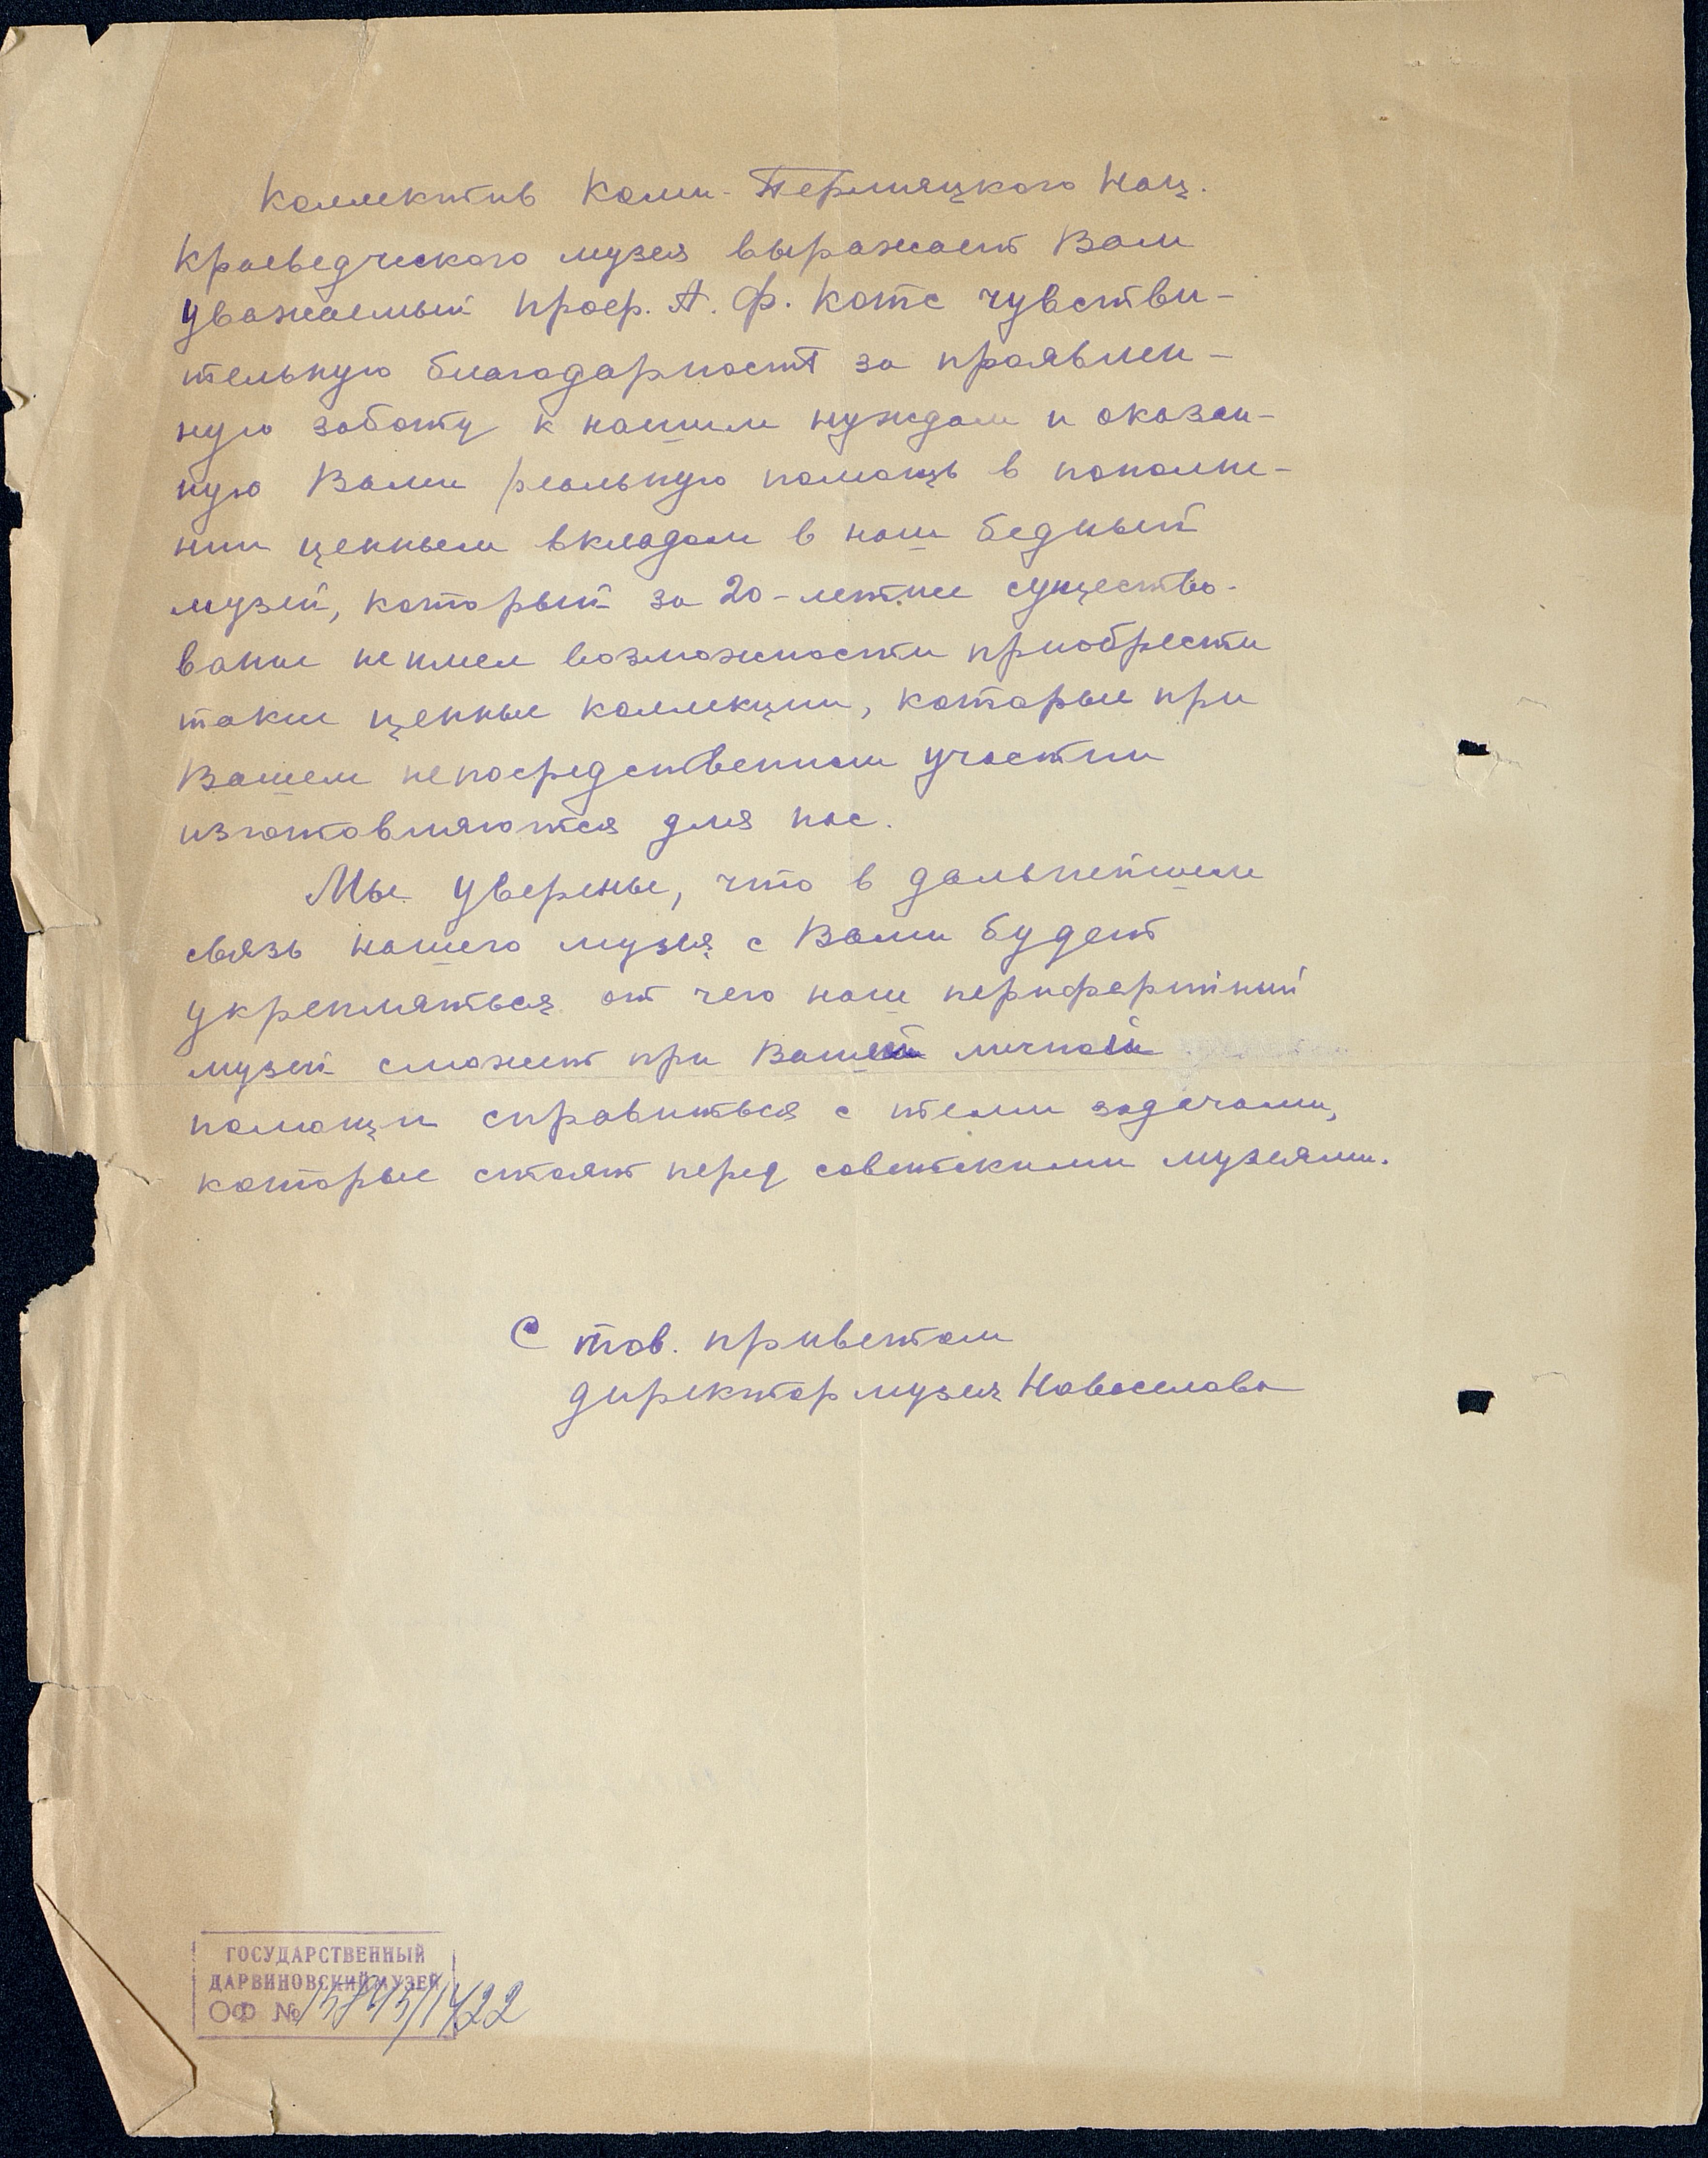 Коллектив Коми-Пермяцкого Нац.
Краеведческого музея выражает Вам
уважаемый проф. А. Ф. Котс чувстви-
тельную благодарность за проявлен-
ную заботу к нашим нуждам и оказан-
ную Вами реальную помощь в пополне-
нии ценным вкладом в наш бедный
музей, который за 20-летние существо-
вание не имел возможности приобрести
такие ценные коллекции, которые при
Вашем непосредственном участии
изготовляются для нас.
Мы уверены, что в дальнейшем
связь нашего музея с Вами будет
укрепляться от чего наш периферийный
музей сможет при Вашей личной
помощи справиться с теми задачами,
которые стоят перед советскими музеями.
С тов. приветом
директор музея Новоселова
ГОСУДАРСТВЕННЫЙ
ДАРВИНОВСКИЙ МУЗЕЙ
ОФ №